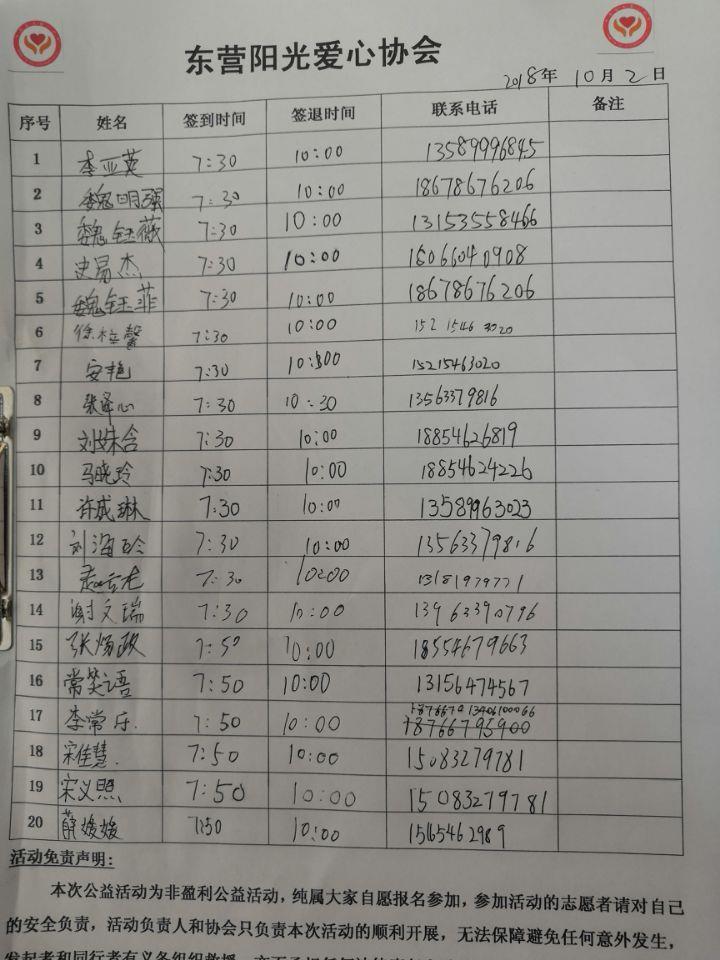 东营阳光爱心协会
2018年 10月 2日
序号 姓名 签到时间 签退时间 联系电话 备注
1 李亚英 7:30 10:00 13589996845
2 魏明强 7:30 10:00 18678676206
3 魏钰薇 7:30 10:00 13153558466
4 史易杰 7:30 10:00 15066040908
5 魏钰菲 7:30 10:00 18678676206
6 7:30 10:00 152 1546 3020
7 安艳 7:30 10:00 15215463020
8 张译心 7:30 10:30 13563379816
9 刘姝含 7:30 10:00 18854626819
10 马晓玲 7:30 10:00 18854624226
11 许威琳 7:30 10:00 13589963023
12 刘海玲 7:30 10:00 13563379816
13 7:30 10:00 13181979771
14 谢文瑞 7:30 10:00 13963390796
15 张炀政 7:50 10:00 18554679663
16 常笑语 7:50 10:00 13156474567
17 李常乐. 7:50 10:00 18766795900
18 宋佳慧. 7:50 10:00 15083279781
19 宋义照 7:50 10:00 15083279781
20 薛媛媛 7:50 10:00 15165462989
活动免责声明:
本次公益活动为非盈利公益活动，纯属大家自愿报名参加，参加活动的志愿者请对自己
的安全负责，活动负责人和协会只负责本次活动的顺利开展，无法保障避免任何意外发生，
发起者和同行者有义务组织救援，